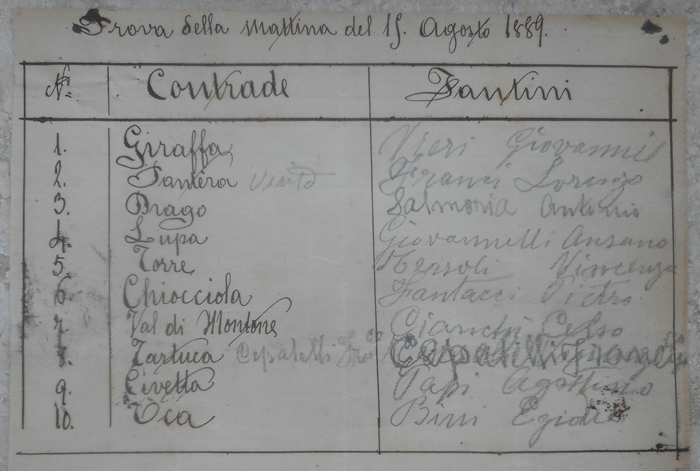 Prova della mattina del 15. Agosto 1889.
Nº Contrade Fantini
1. Giraffa Vieri Giovanni
2. Pantera vinto Franci Lorenzo
3. Drago Salmoria Antonio
4. Lupa Giovannelli Ansano
5. Torre Tersoli Vincenzo
6. Chiocciola Fantacci Pietro
7. Val di Montone Cianchi Celso
8. Tartuca Cepatelli Cepatelli
9. Civetta Papi Agostino
10. Oca Bini Egidio